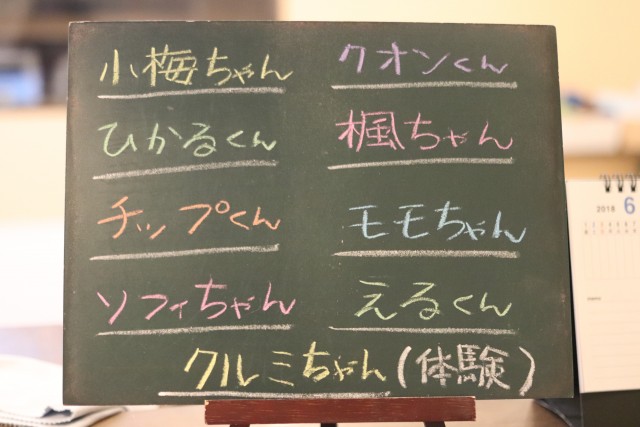 小梅ちゃん
クオンくん
ひかるくん
楓ちゃん
チップくん
モモちゃん
ソフィちゃん
えるくん
クルミちゃん(体験)
2018 6